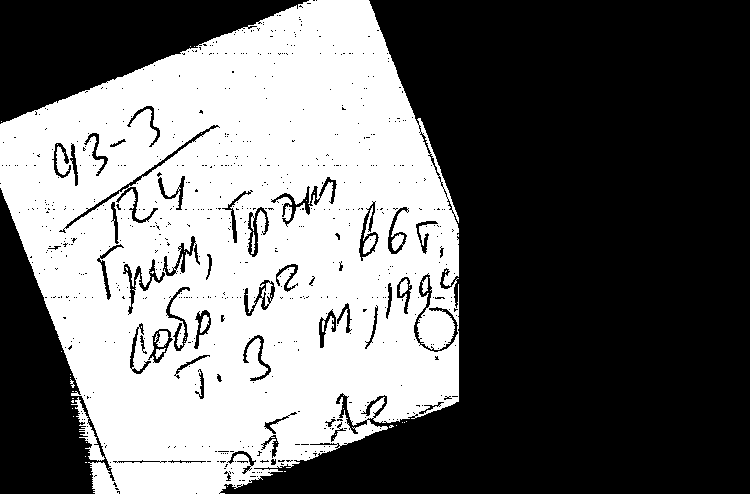 93-3
124
Грин, Грэм
Собр. соч. : в 6 т.
Т. 3 М., 1994